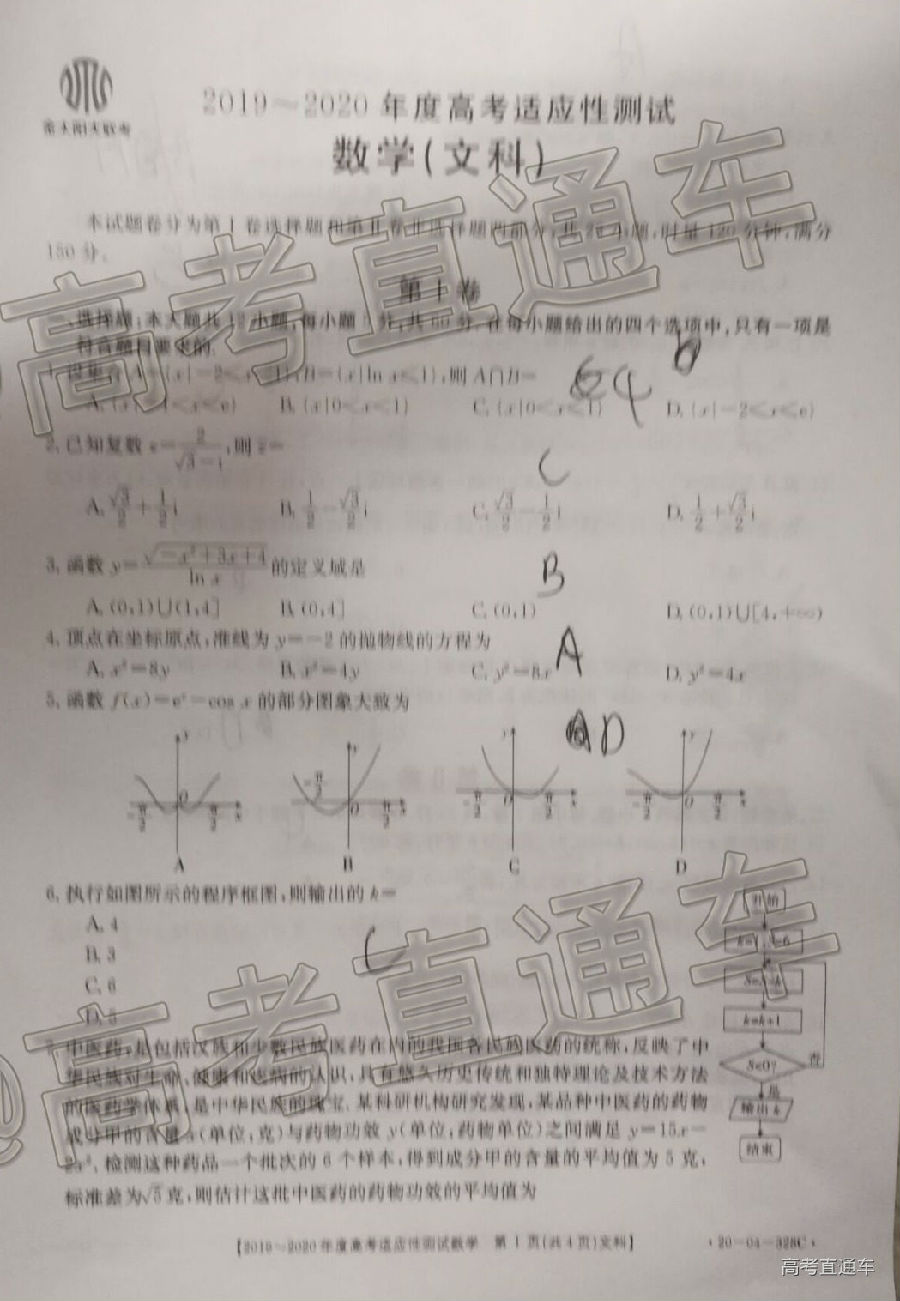 金太阳大联考
2019～2020年度高考适应性测试
数学(文科)
本试题卷分为第Ⅰ卷选择题和第Ⅱ卷非选择题两部分,共 小题,时量120分钟,满分
150分。
第Ⅰ卷
一、选择题:本大题共12小题,每小题5分,共60分.在每小题给出的四个选项中,只有一项是
符合题目要求的.
1. 设集合A={x|-2<x<1},B={x|ln x<1},则A∩B=
b
C4
A. <x<e} B. {x|0<x<1} C. {x|0<x<1} D. {x|-2<x<e}
2. 已知复数z=2/(√3-i),则z̄=
C
A. √3/2+1/2i B. 1/2-√3/2i C. √3/2-1/2i D. 1/2+√3/2i
3. 函数y=√(-x²+3x+4)/ln x的定义域是
B
A. (0,1)∪(1,4] B. (0,4] C. (0,1) D. (0,1)∪[4,+∞)
4. 顶点在坐标原点,准线为y=-2的抛物线的方程为
A
A. x²=8y B. x²=4y C. y²=8x D. y²=4x
5. 函数f(x)=eˣ-cos x的部分图象大致为
D
y y y y
-π/2 O π/2 x -π/2 O π/2 x -π/2 O π/2 x -π/2 O π/2 x
A B C D
6. 执行如图所示的程序框图,则输出的k=
A. 4
B. 3
C. 6
D. 5
C
开始
k=k+1
S<0?
否
是
输出k
结束
7. 中医药,是包括汉族和少数民族医药在内的我国各民族医药的统称,反映了中
华民族对生命、健康和疾病的认识,具有悠久历史传统和独特理论及技术方法
的医药学体系,是中华民族的瑰宝.某科研机构研究发现,某品种中医药的药物
成分甲的含量x(单位:克)与药物功效y(单位:药物单位)之间满足y=15x-
2x².检测这种药品一个批次的6个样本,得到成分甲的含量的平均值为5克,
标准差为√5克,则估计这批中医药的药物功效的平均值为
【2019～2020年度高考适应性测试数学 第1页(共4页)文科】
·20-04-328C·
高考直通车
高考直通车
@高考直通车
高考直通车